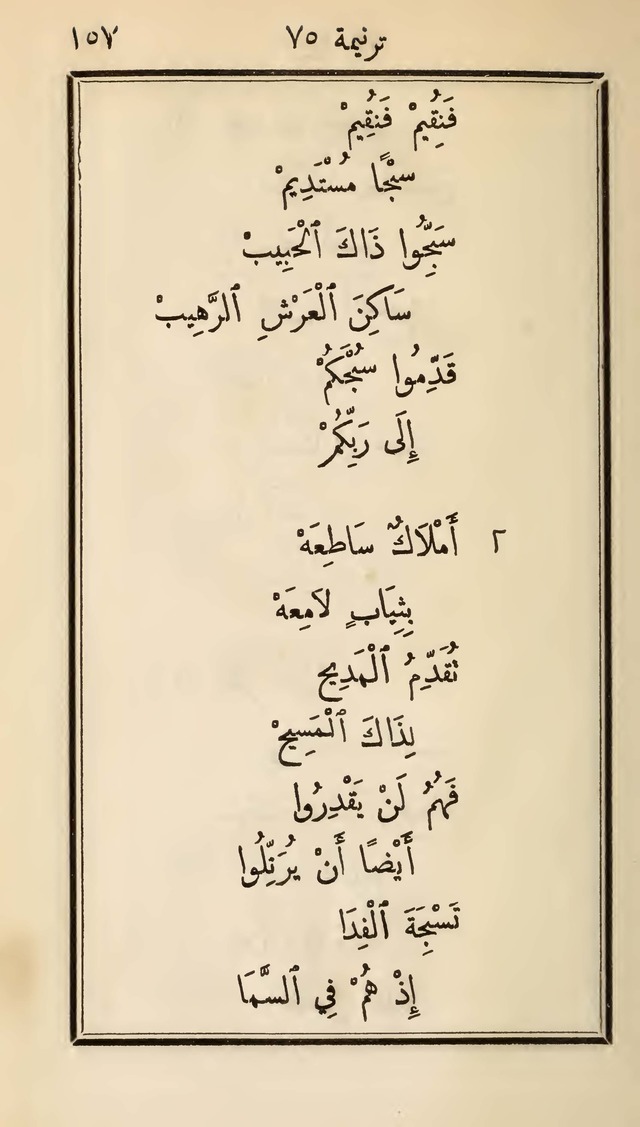 ترنيمة ٧٥ ١٥٧
فَنُقِيمْ فَنُقِيمْ
سُبْحًا مُسْتَدِيمْ
سَبِّحُوا ذَاكَ ٱلْحَبِيبْ
سَاكِنَ ٱلْعَرْشِ ٱلرَّهِيبْ
قَدِّمُوا سُبْحَكُمْ
إِلَى رَبِّكُمْ
٢ أَمْلَاكٌ سَاطِعَهْ
بِثِيَابٍ لَامِعَهْ
تُقَدِّمُ ٱلْمَدِيح
لِذَاكَ ٱلْمَسِيحْ
فَهُمُ لَنْ يَقْدِرُوا
أَيْضًا أَنْ يُرَنِّلُوا
تَسْبِحَةَ ٱلْفِدَا
إِذْ هُمْ فِي ٱلسَّمَا